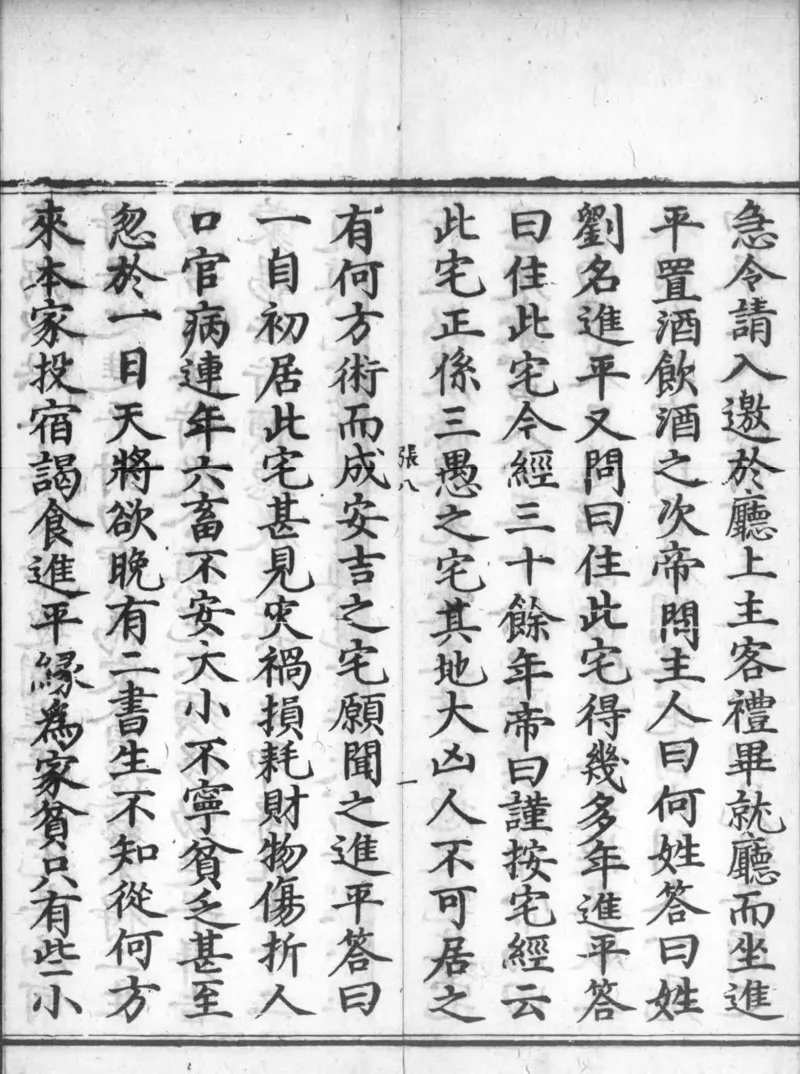 急令請入邀於廳上主客禮畢就廳而坐進
平置酒飲酒之次帝問主人曰何姓答曰姓
劉名進平又問曰住此宅得幾多年進平答
曰住此宅今經三十餘年帝曰謹按宅經云
此宅正係三愚之宅其地大凶人不可居之
張八
一
有何方術而成安吉之宅願聞之進平答曰
一自初居此宅甚見灾禍損耗財物傷折人
口官病連年六畜不安大小不寧貧乏甚至
忽於一日天將欲晚有二書生不知從何方
來本家投宿謁食進平緣為家貧只有些小